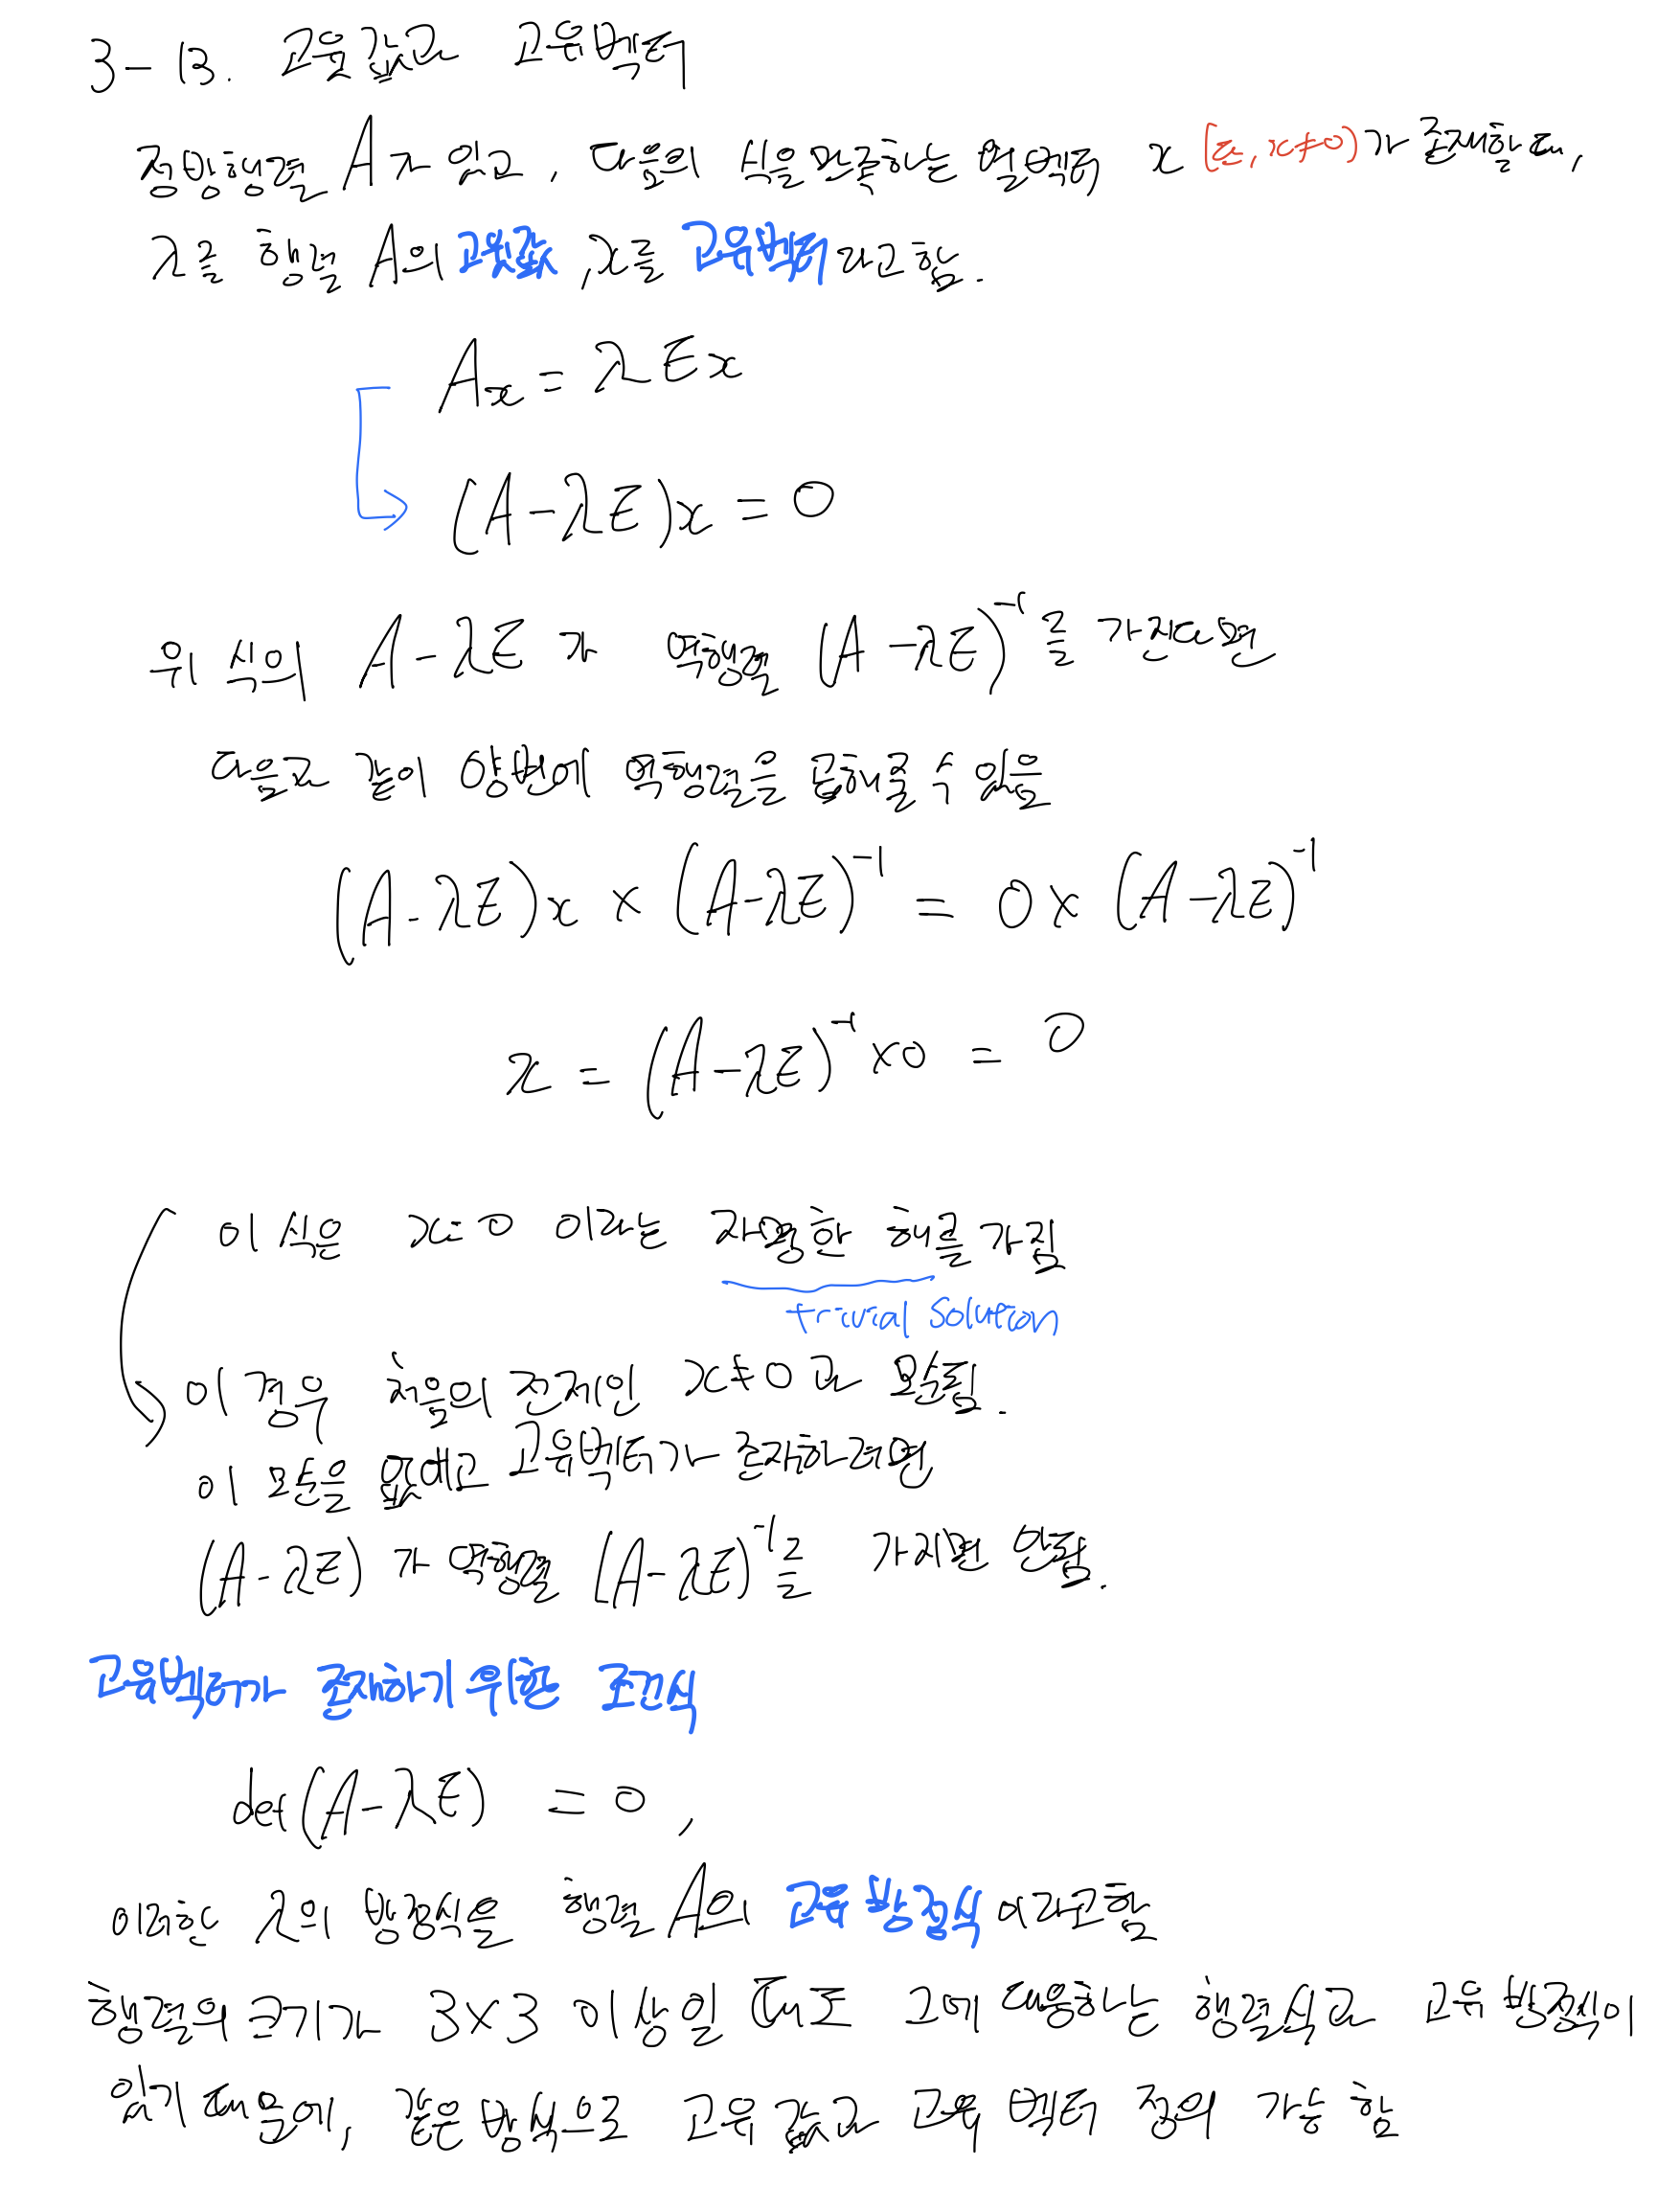 3-13. 고윳값과 고유벡터
정방행렬 A가 있고, 다음의 식을 만족하는 열벡터 x (단, x≠0)가 존재할 때,
λ를 행렬 A의 고윳값, x를 고유벡터라고 함.
Ax = λEx
(A-λE)x = 0
위 식의 A-λE가 역행렬 (A-λE)⁻¹를 가진다면
다음과 같이 양변에 역행렬을 곱해줄 수 있음
(A-λE)x × (A-λE)⁻¹ = 0 × (A-λE)⁻¹
x = (A-λE)⁻¹ × 0 = 0
이 식은 x=0 이라는 자명한 해를 가짐
trivial solution
이 경우 처음의 전제인 x≠0과 모순됨.
이 모순을 없애고 고유벡터가 존재하려면
(A-λE)가 역행렬 (A-λE)⁻¹를 가지면 안됨.
고유벡터가 존재하기 위한 조건식
det(A-λE) = 0,
이러한 λ의 방정식을 행렬 A의 고유방정식이라고 함
행렬의 크기가 3×3 이상일 때도 그에 대응하는 행렬식과 고유 방정식이
있기 때문에, 같은 방식으로 고유값과 고유 벡터 정의 가능 함